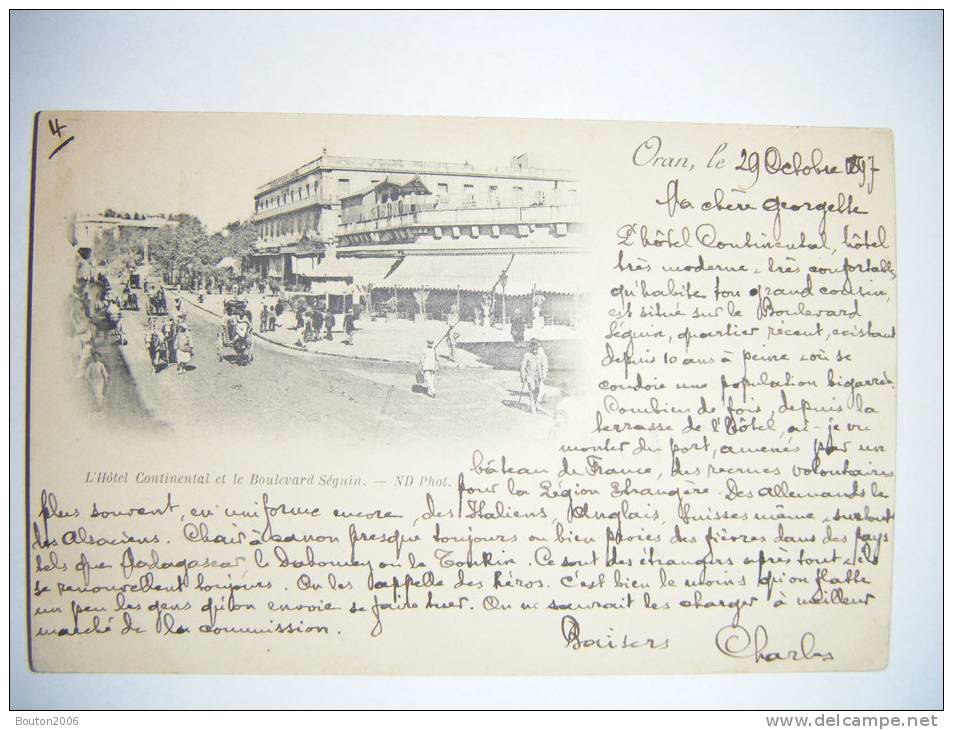 4
Oran, le 29 Octobre 97
Ma chère Georgette
L'hôtel Continental, hôtel
très moderne, très confortable
qu'habite ton grand cousin,
est situé sur le Boulevard
Séguin, quartier récent, existant
depuis 10 ans à peine, où se
coudoie une population bigarrée.
Combien de fois, depuis la
terrasse de l'Hôtel, ai-je vu
monter du port, amenés par un
bâteau de France, des recrues volontaires
L'Hôtel Continental et le Boulevard Séguin. — ND Phot.
pour la Légion Etrangère. Des allemands le
plus souvent, en uniforme encore, des Italiens, Anglais, Suisses même, surtout
des Alsaciens. Chair à canon presque toujours ou bien proies des fièvres dans des pays
tels que Madagascar, le Dahomey ou le Tonkin. Ce sont des étrangers après tout, ils
se renouvellent toujours. On les appelle des héros. C'est bien le moins qu'on flatte
un peu les gens qu'on envoie se faire tuer. On ne saurait les charger à meilleur
marché de la commission.
Baisers Charles
Bouton2006
www.delcampe.net